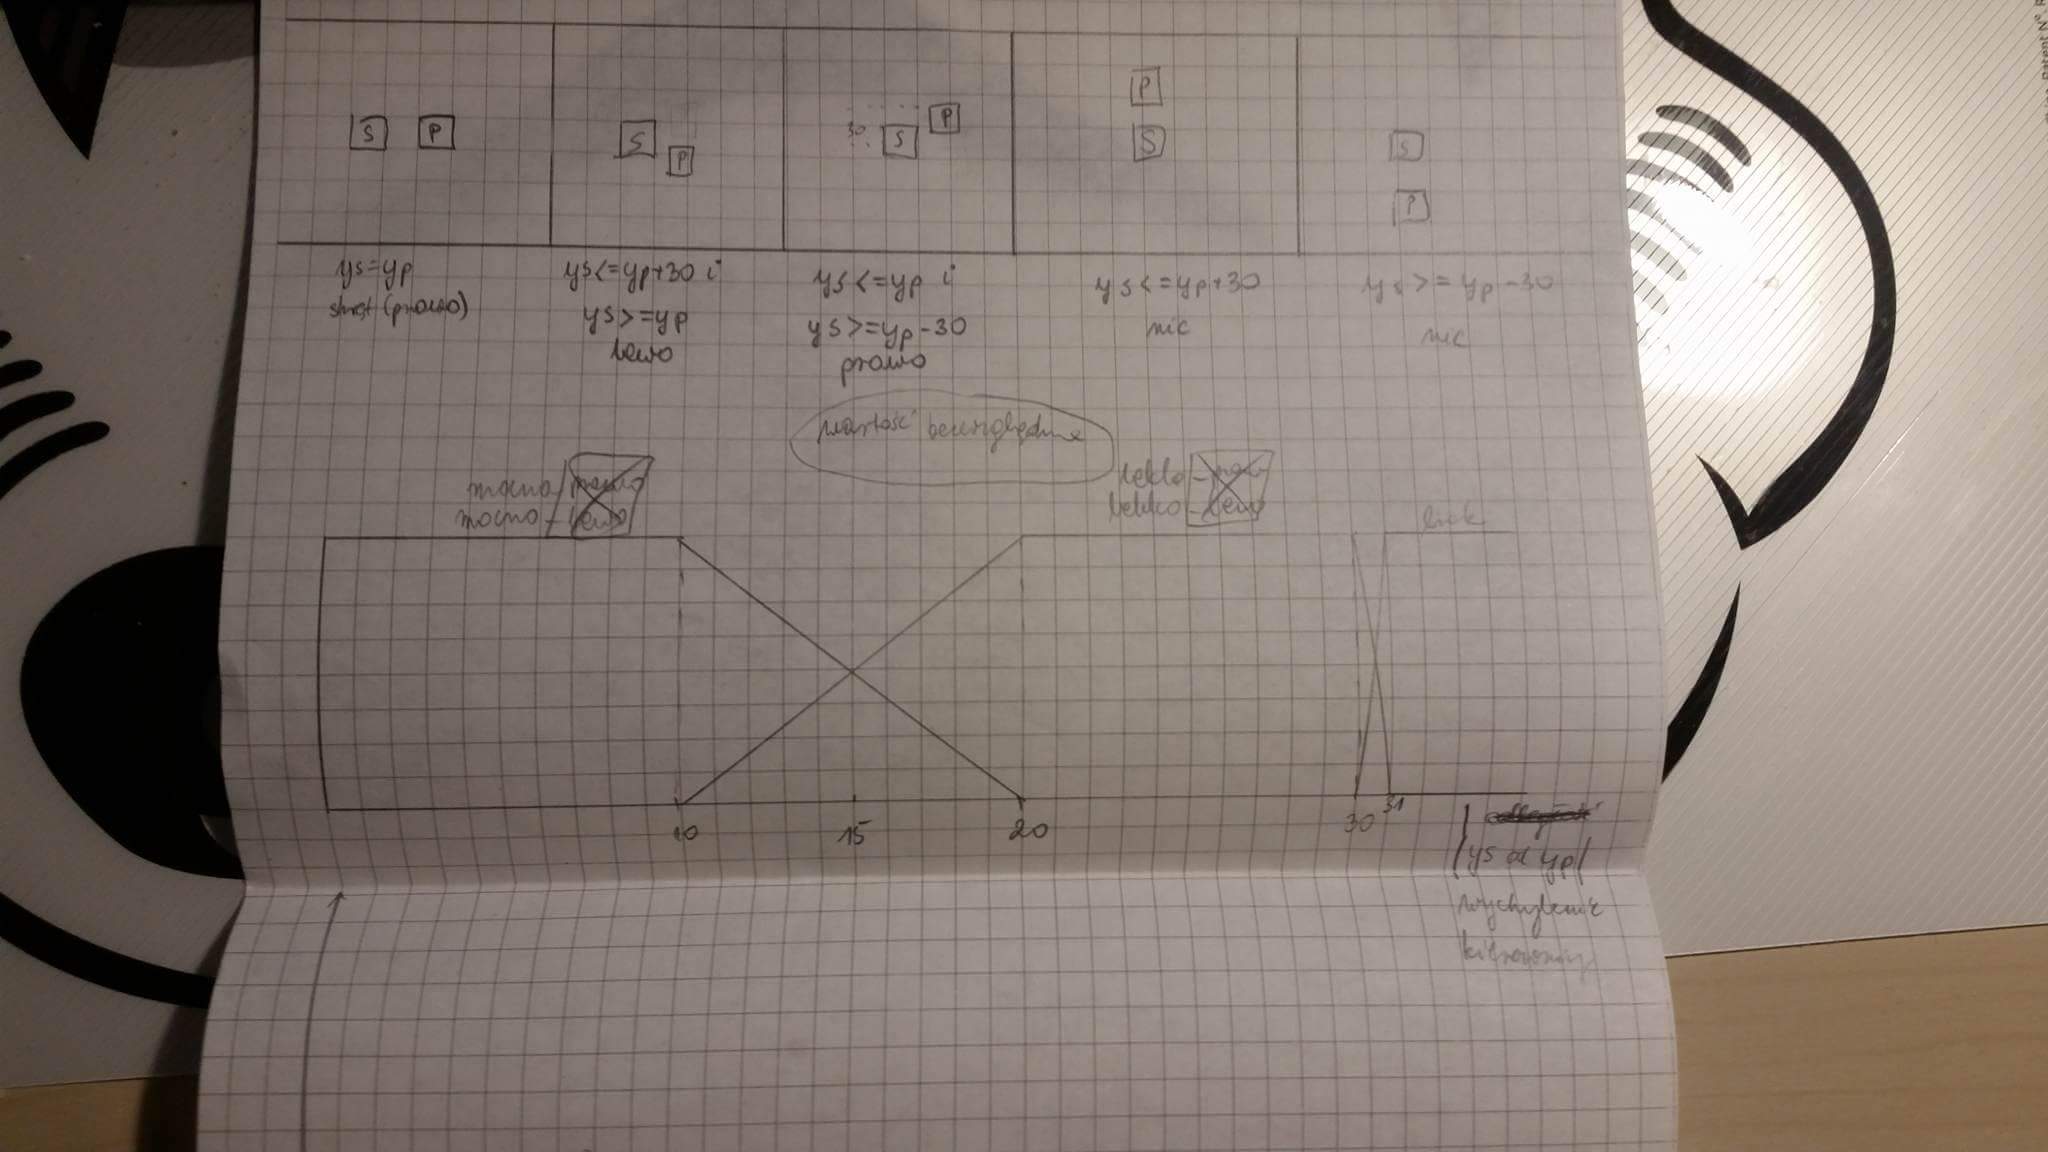 S P
S
P
30 S P
P
S
S
P
ys=yp
skręt (prawo)
ys<=yp+30 i
ys>=yp
lewo
ys<=yp i
ys>=yp-30
prawo
ys<=yp+30
nic
ys>=yp-30
nic
wartość bezwzględna
mocno prawo
mocno - lewo
lekko - prawo
lekko - lewo
brak
10 15 20 30 31
|ys od yp|
wychylenie
kierownicy